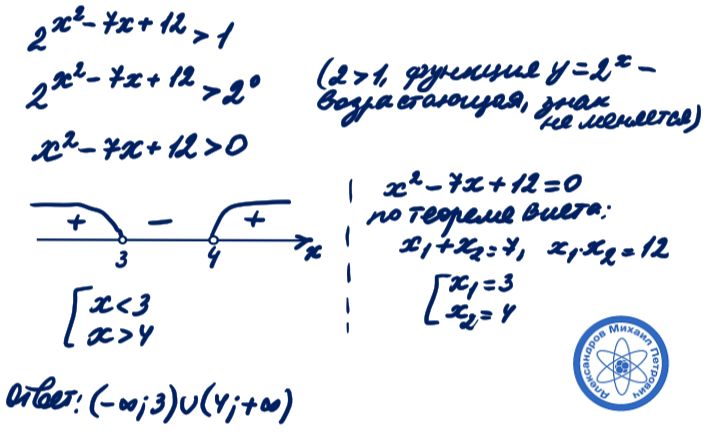 2^(x²-7x+12) > 1
2^(x²-7x+12) > 2⁰
(2>1, функция y=2ˣ –
возрастающая, знак
не меняется)
x²-7x+12>0
+ – +
3 4 x
[x<3
x>4
x²-7x+12=0
по теореме Виета:
x₁+x₂=7, x₁·x₂=12
[x₁=3
x₂=4
Ответ: (-∞;3)∪(4;+∞)
Александров Михаил Петрович